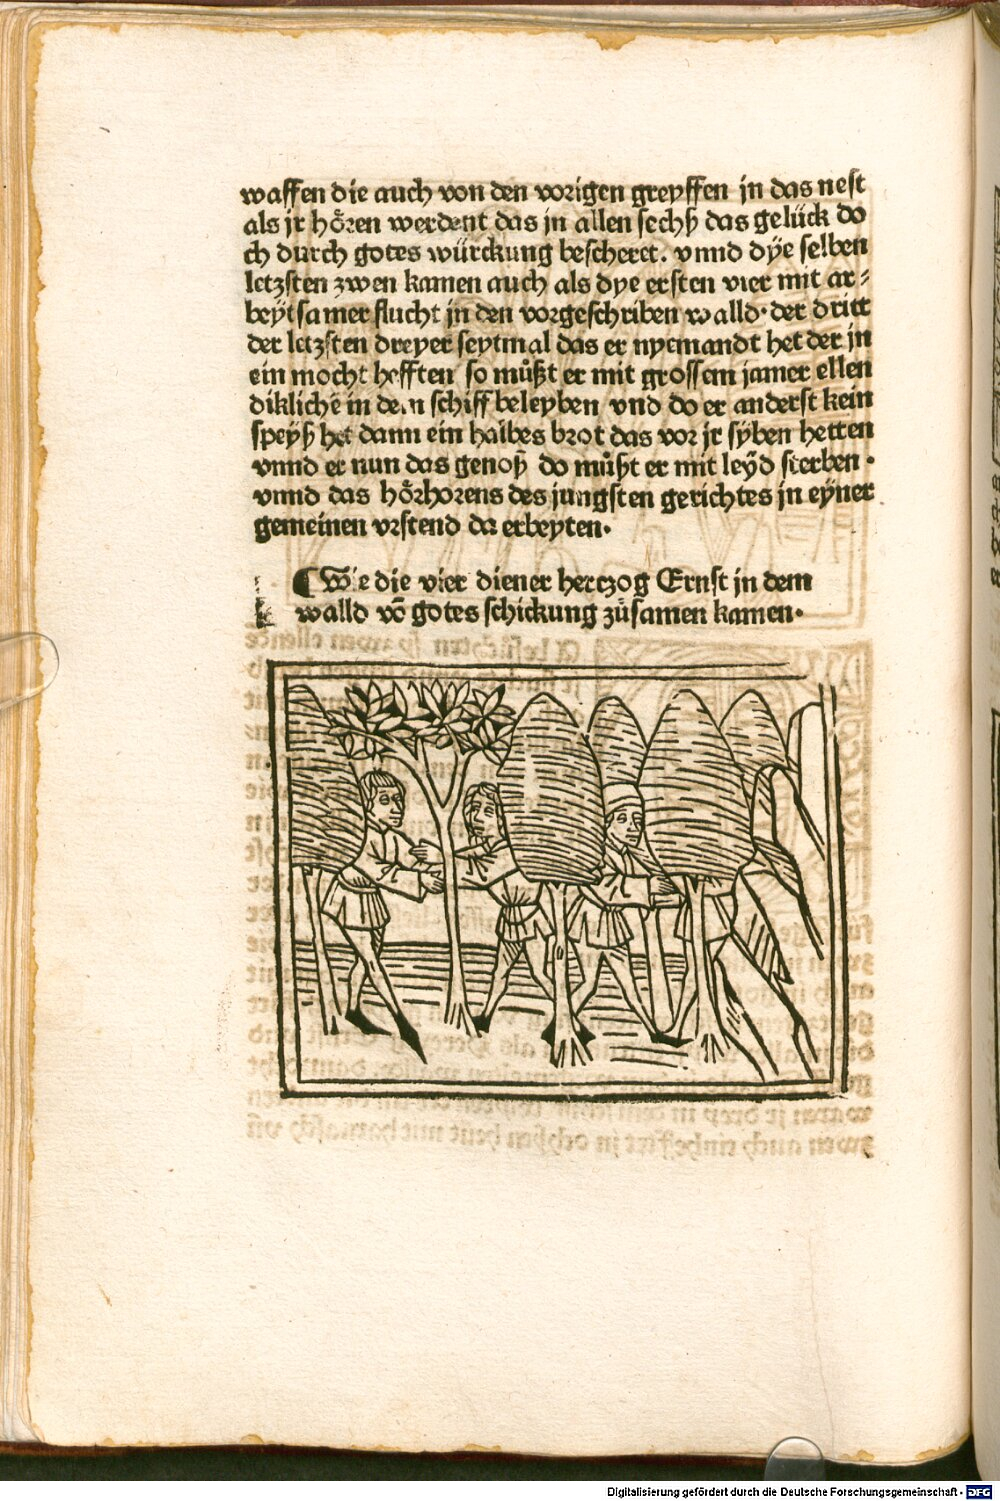 waffen die auch von den vorigen greyffen in das nest
als jr hören werdent das in allen sechß das gelück do
ch durch gotes würckung bescheret. vnnd dÿe selben
letzsten zwen kamen auch als dye ersten vier mit ar⸗
beÿtsamer flucht in den vorgeschriben walld· der dritt
der letzsten dreyer seytmal das er nyemandt het der jn
ein mocht hefften so můßt er mit grossem jamer ellen
diklichē in dem schiff beleyben vnd do er anderst kein
speÿß het dann ein halbes brot das vor jr sÿben hetten
vnnd er nun das genoß do můßt er mit leÿd sterben ·
vnnd das hörhorens des jungsten gerichtes in eÿner
gemeinen vrstend da erbeyten·
¶ Wie die vier diener hertzog Ernst in dem
walld vō gotes schickung zůsamen kamen·
Digitalisierung gefördert durch die Deutsche Forschungsgemeinschaft - DFG